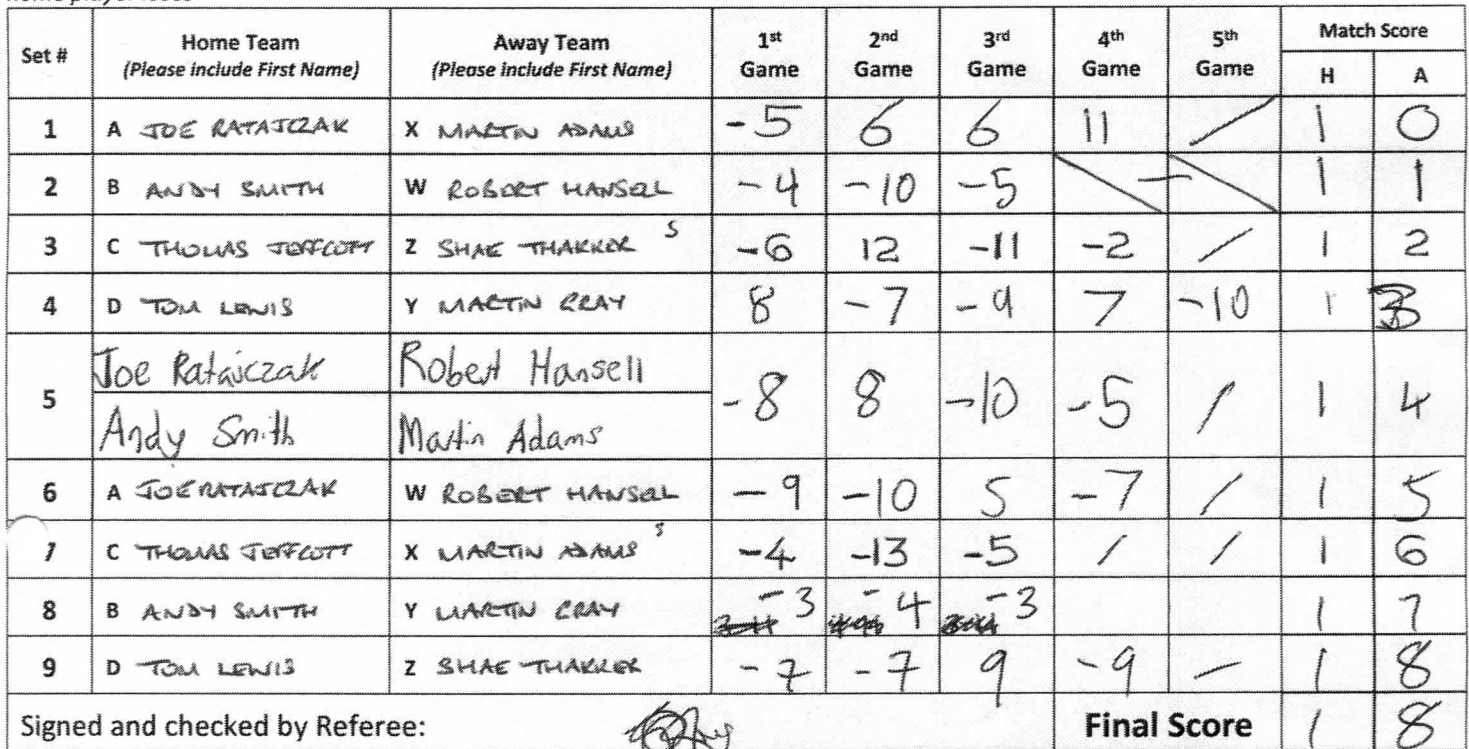 home player loses
Set # Home Team (Please include First Name) Away Team (Please include First Name) 1st Game 2nd Game 3rd Game 4th Game 5th Game Match Score H A
1 A JOE RATAJCZAK X MARTIN ADAMS -5 6 6 11 / 1 0
2 B ANDY SMITH W ROBERT HANSELL -4 -10 -5 — 1 1
3 C THOMAS JEFFCOTT Z SHAE THAKKER S -6 12 -11 -2 / 1 2
4 D TOM LEWIS Y MARTIN GRAY 8 -7 -9 7 -10 1 3
Joe Ratajczak Robert Hansell
5 -8 8 -10 -5 / 1 4
Andy Smith Martin Adams
6 A JOE RATAJCZAK W ROBERT HANSELL -9 -10 5 -7 / 1 5
7 C THOMAS JEFFCOTT X MARTIN ADAMS S -4 -13 -5 / / 1 6
8 B ANDY SMITH Y MARTIN GRAY -3 -4 -3 1 7
9 D TOM LEWIS Z SHAE THAKKER -7 -7 9 -9 — 1 8
Signed and checked by Referee: Final Score 1 8